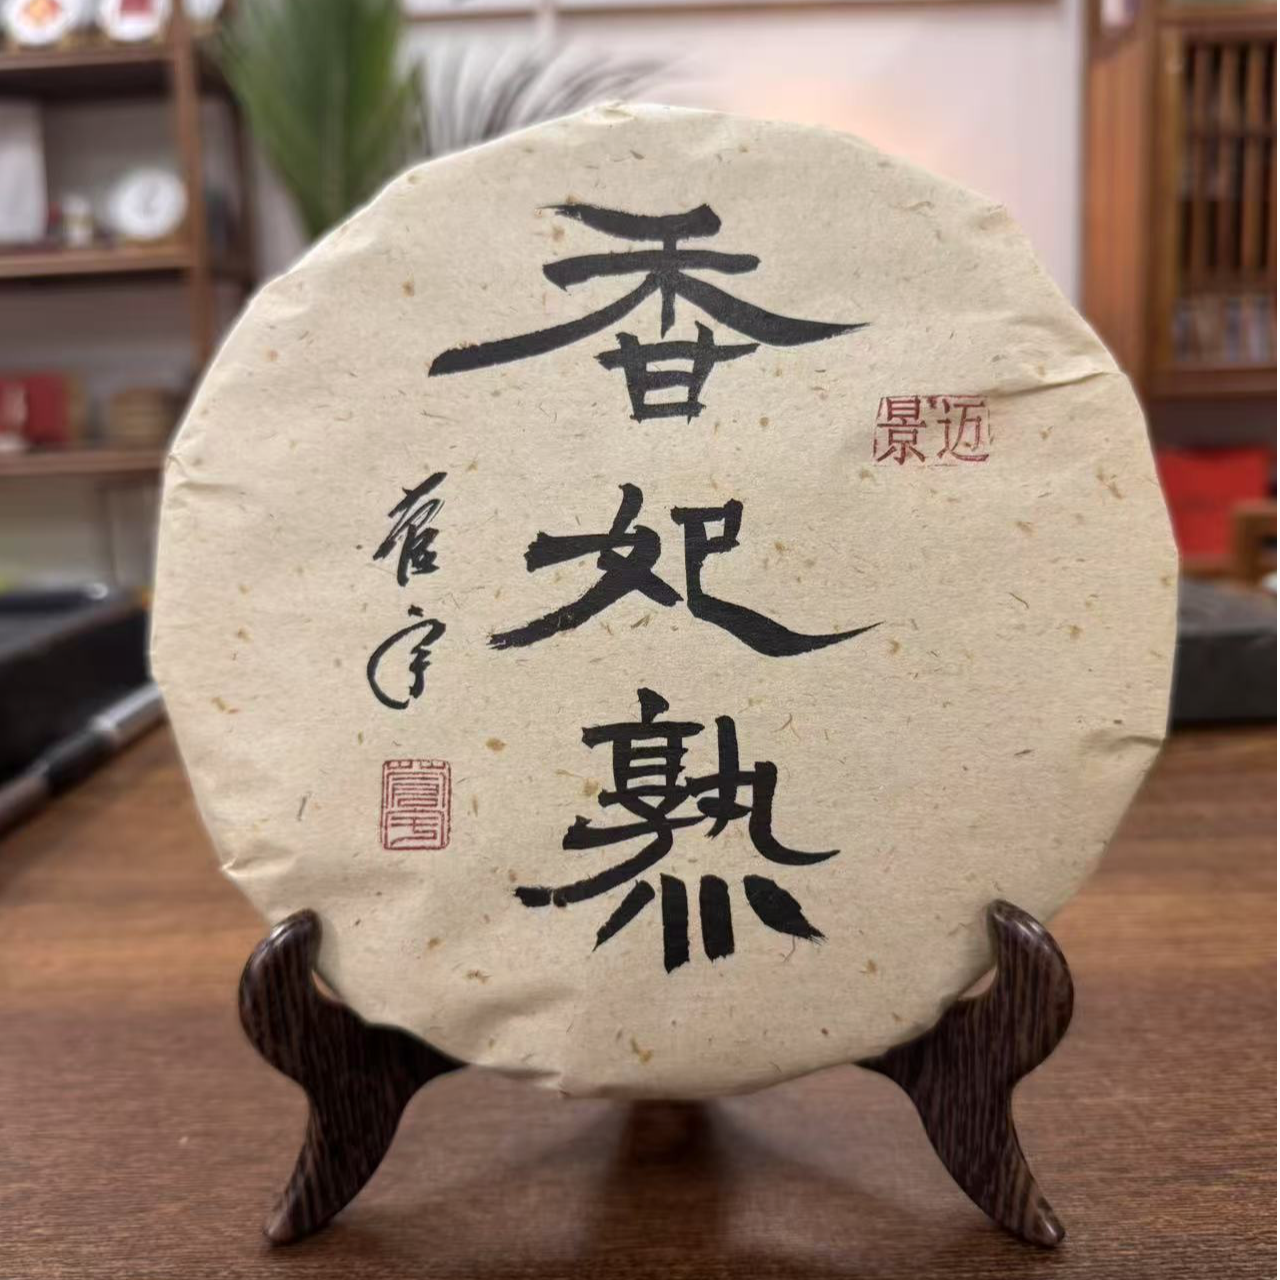 香妃熟
景迈